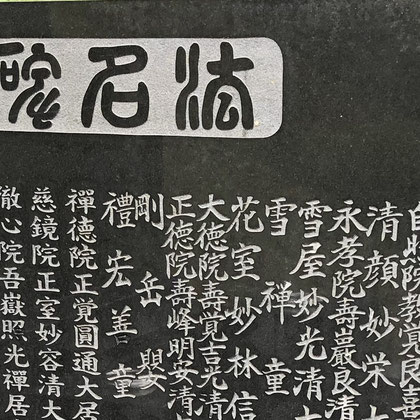 法名碑
清顔妙栄大
永孝院壽巖良清
雪屋妙光清大
雪禪童
花室妙林信
大徳院壽覚吉光清
正徳院壽峰明安清
剛岳嬰
禮宏善童
禪徳院正覚圓通大居
慈鏡院正室妙容清大
徹心院吾嶽照光禪居